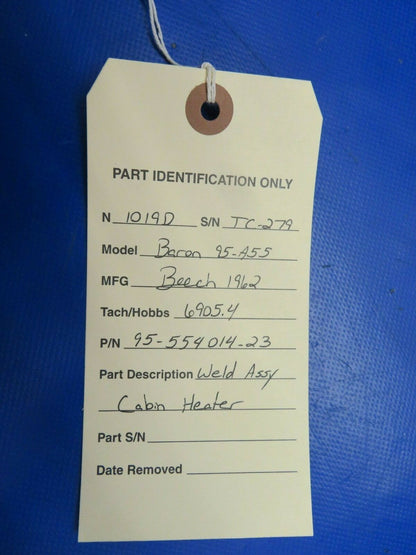 PART IDENTIFICATION ONLY
N 1019D S/N TC-279
Model Baron 95-A55
MFG Beech 1962
Tach/Hobbs 6905.4
P/N 95-554014-23
Part Description Weld Assy
Cabin Heater
Part S/N
Date Removed